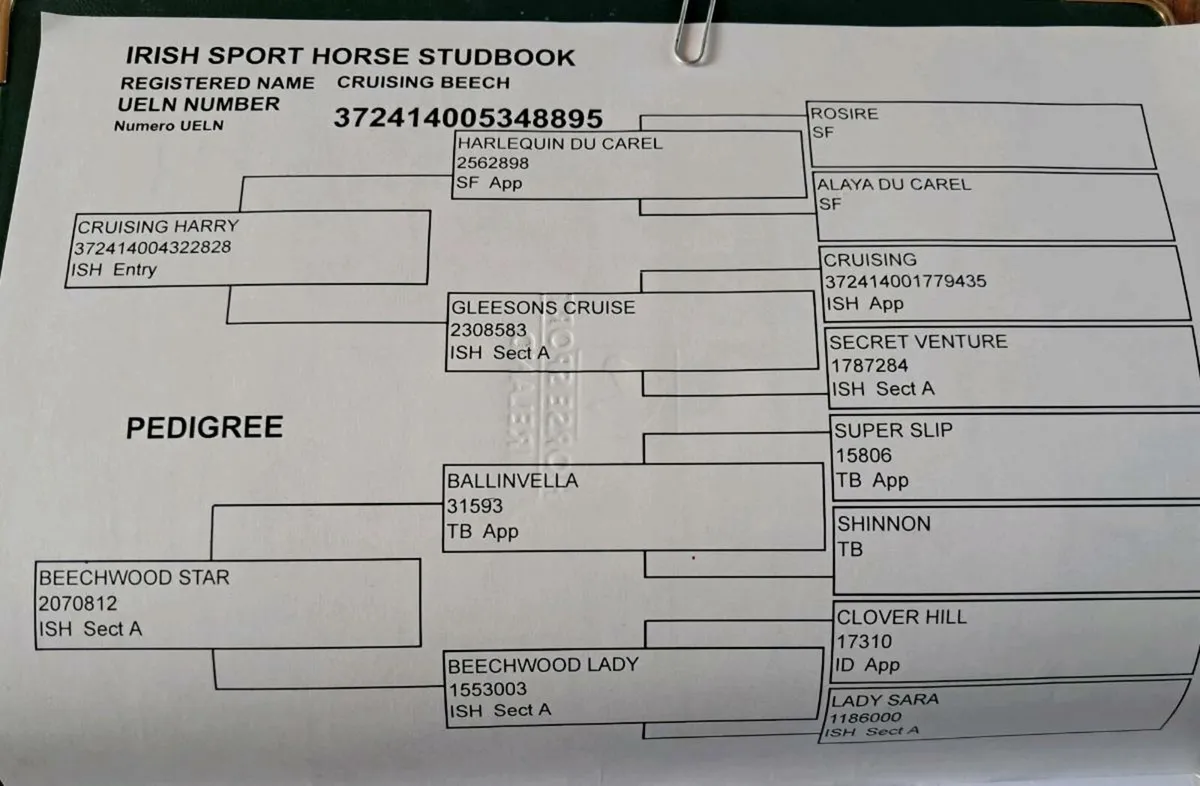 IRISH SPORT HORSE STUDBOOK
REGISTERED NAME CRUISING BEECH
UELN NUMBER
Numero UELN 372414005348895
ROSIRE
SF
HARLEQUIN DU CAREL
2562898
SF App
ALAYA DU CAREL
SF
CRUISING HARRY
372414004322828
ISH Entry
CRUISING
372414001779435
ISH App
GLEESONS CRUISE
2308583
ISH Sect A
SECRET VENTURE
1787284
ISH Sect A
PEDIGREE
SUPER SLIP
15806
TB App
BALLINVELLA
31593
TB App
SHINNON
TB
BEECHWOOD STAR
2070812
ISH Sect A
CLOVER HILL
17310
ID App
BEECHWOOD LADY
1553003
ISH Sect A
LADY SARA
1186000
ISH Sect A